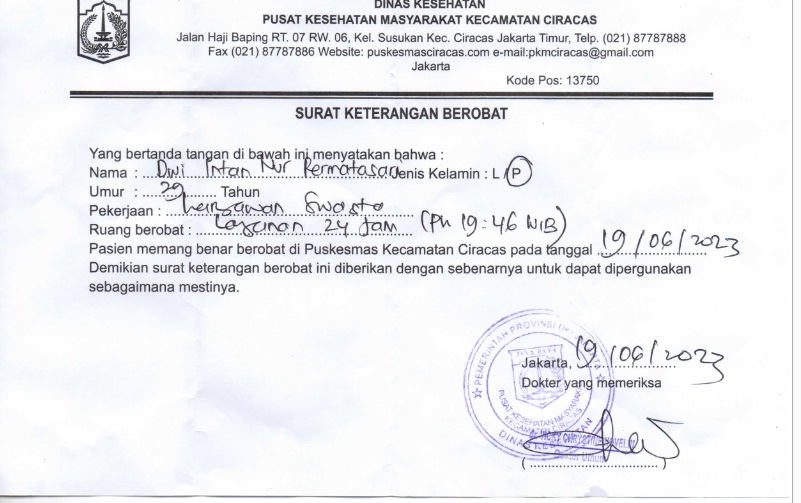 DINAS KESEHATAN
PUSAT KESEHATAN MASYARAKAT KECAMATAN CIRACAS
Jalan Haji Baping RT. 07 RW. 06, Kel. Susukan Kec. Ciracas Jakarta Timur, Telp. (021) 87787888
Fax (021) 87787886 Website: puskesmasciracas.com e-mail:pkmciracas@gmail.com
Jakarta
Kode Pos: 13750
SURAT KETERANGAN BEROBAT
Yang bertanda tangan di bawah ini menyatakan bahwa :
Nama : Dwi Intan Nur Permatasari Jenis Kelamin : L / P
Umur : 29 Tahun
Pekerjaan : karyawan Swasta
Ruang berobat : Layanan 24 Jam (Pk 19:46 WIB)
Pasien memang benar berobat di Puskesmas Kecamatan Ciracas pada tanggal 19/06/2023
Demikian surat keterangan berobat ini diberikan dengan sebenarnya untuk dapat dipergunakan
sebagaimana mestinya.
Jakarta, 19/06/2023
Dokter yang memeriksa
PEMERINTAH PROVINSI
JAYA RAYA
PUSAT KESEHATAN MASYARAKAT
KECAMATAN CIRACAS
DINAS KESEHATAN
Dokter Umum